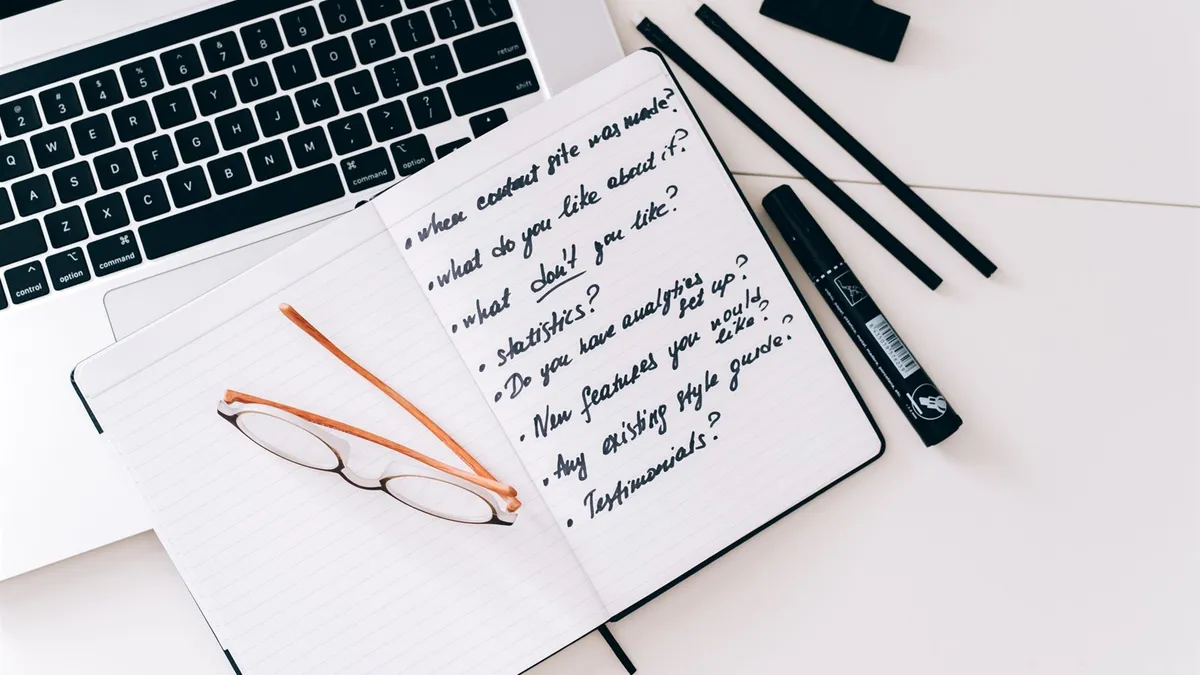 • when content site was made?
• what do you like about it?
• what don't you like?
• statistics?
• Do you have analytics
set up?
• New features you would
like?
• Any existing style guide?
• Testimonials?
@ 2
# 3
$ 4
% 5
^ 6
& 7
* 8
( 9
) 0
{ [
} ]
Q W E R T Y U I O P
return
A S D F G H J K L
: ;
" '
shift
Z X C V B N M
< ,
> .
? /
control
option
command
command
option